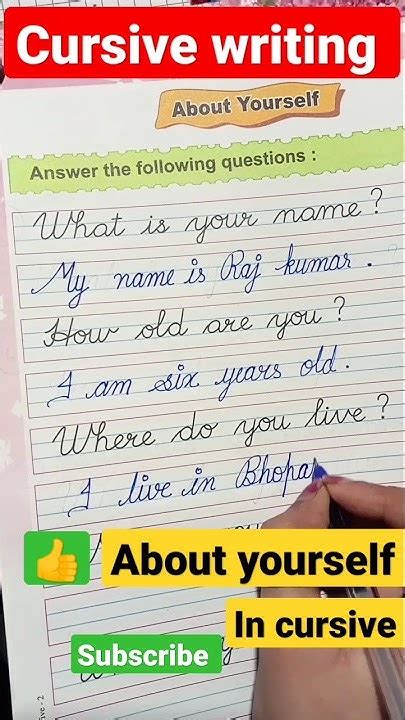 Cursive writing
About Yourself
Answer the following questions :
What is your name ?
My name is Raj kumar .
How old are you ?
I am six years old .
Where do you live ?
I live in Bhopa
👍 About yourself
In cursive
Subscribe